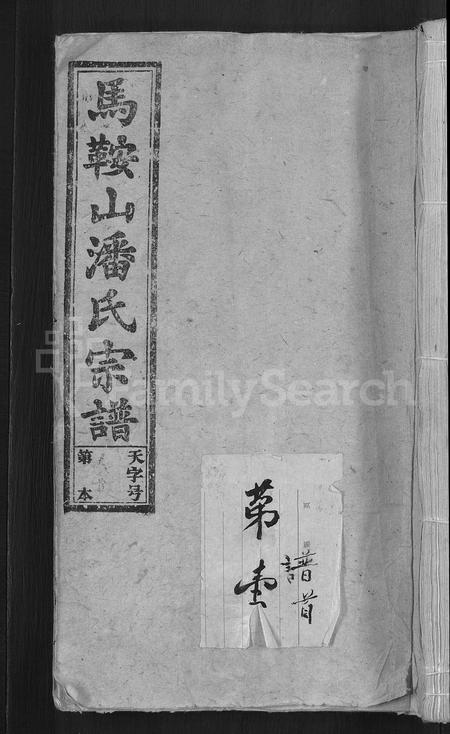 馬鞍山潘氏宗譜
天字号
第 本
譜首
第壹
FamilySearch